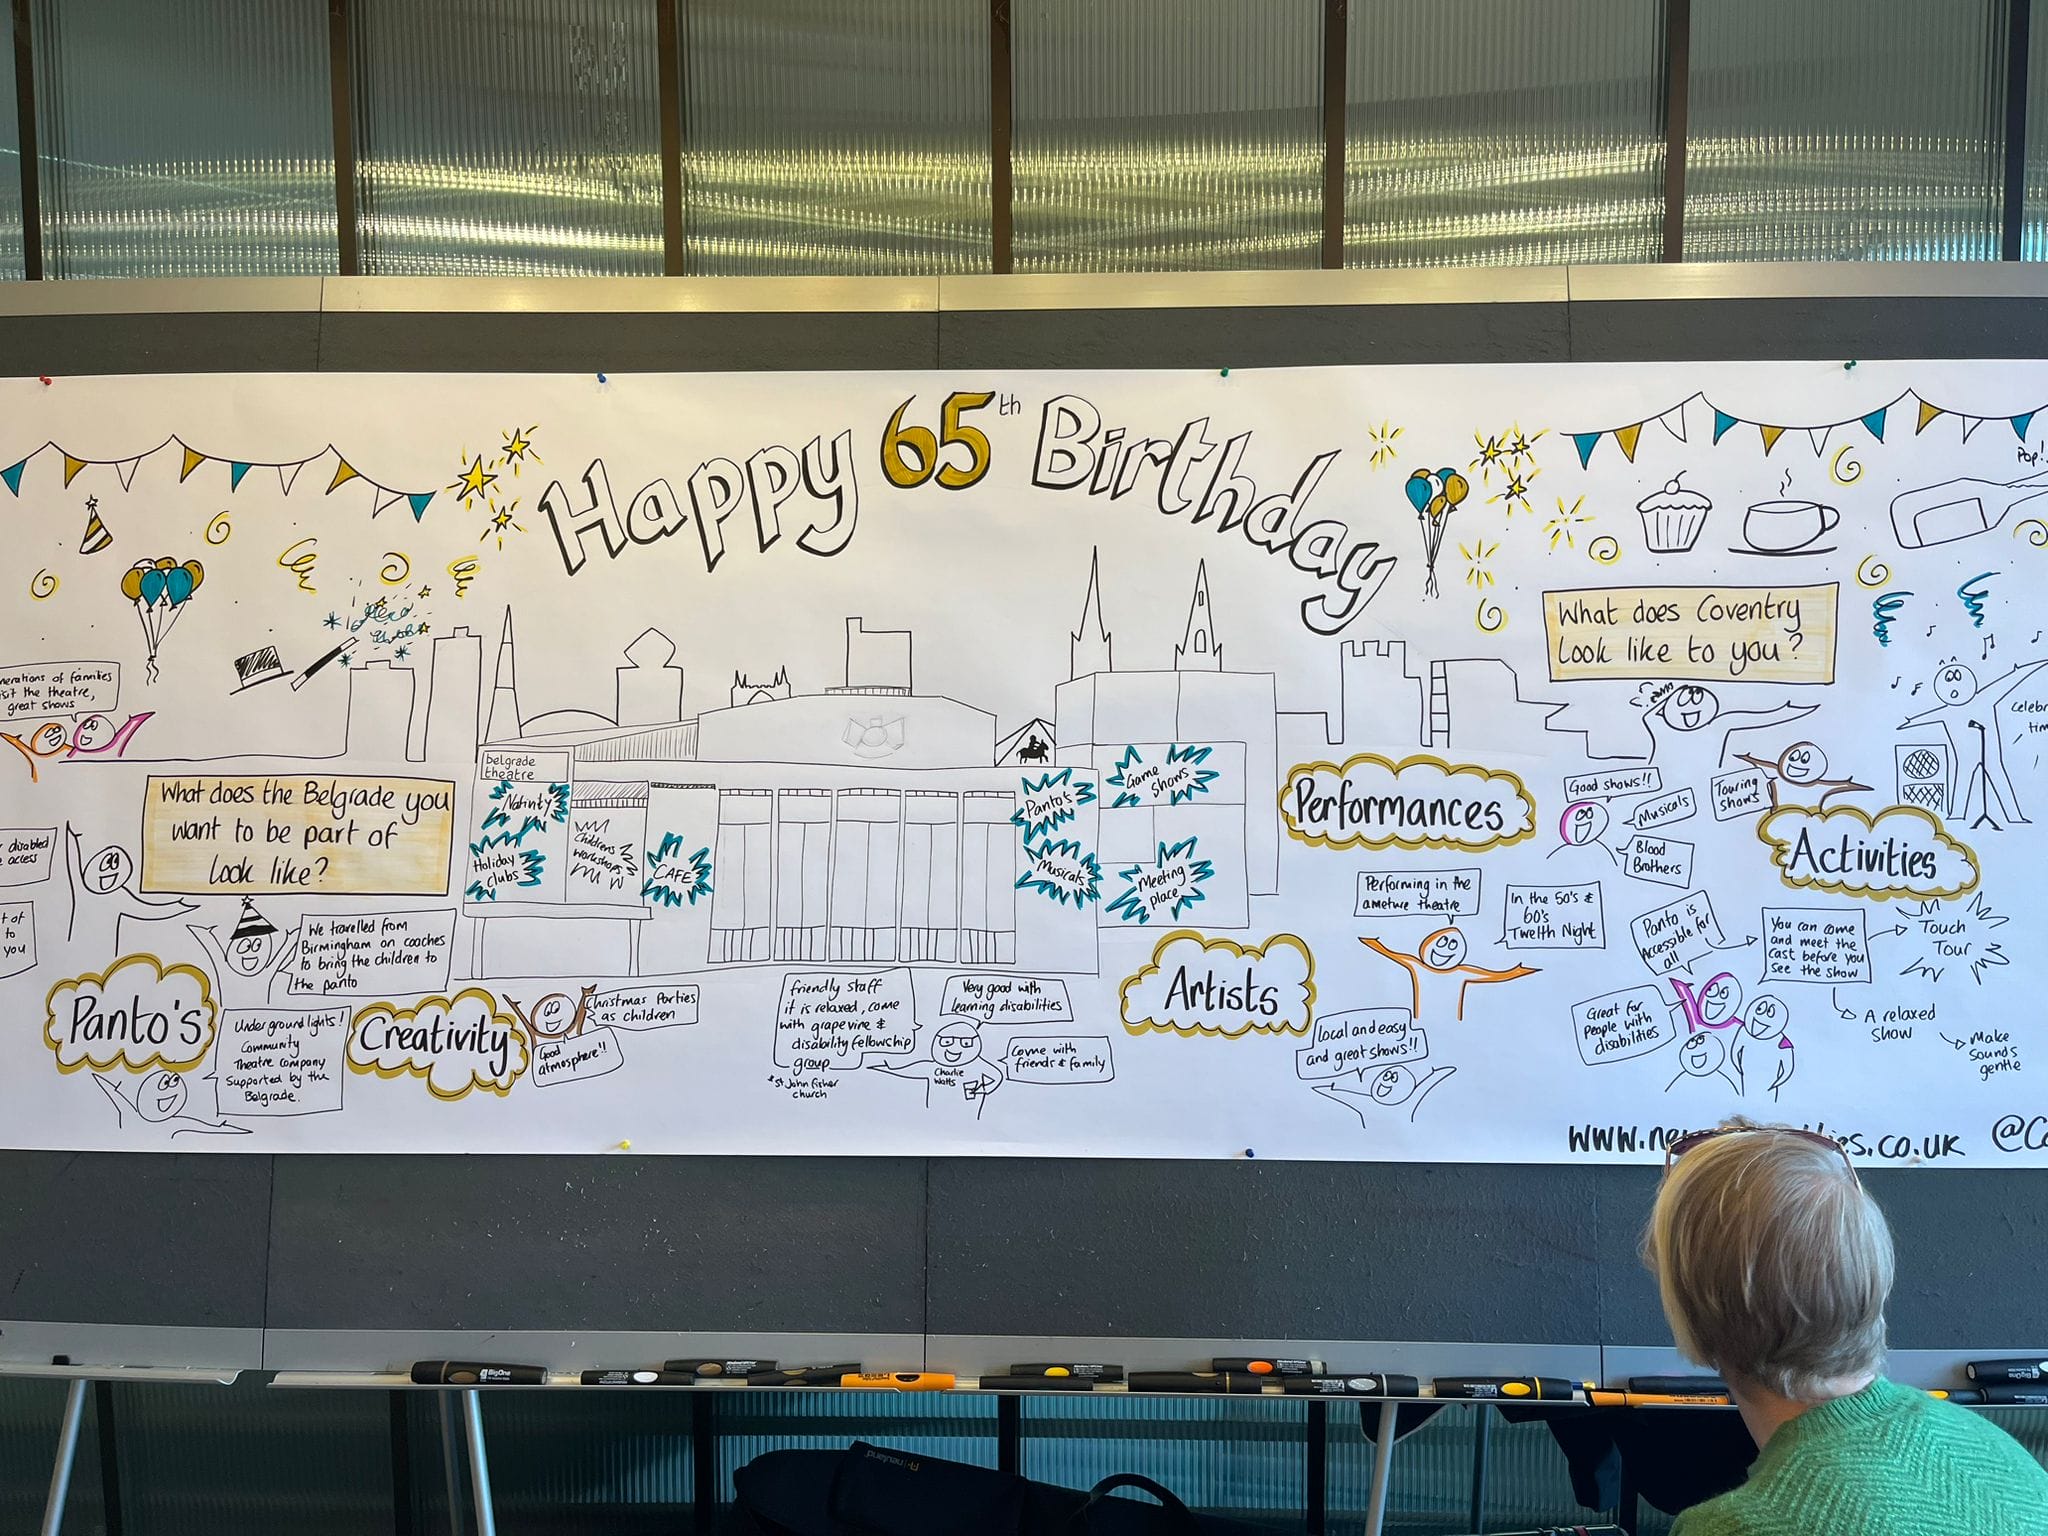 Happy 65th Birthday
Pop!
What does Coventry
look like to you?
families
visit the theatre,
great shows
What does the Belgrade you
want to be part of
look like?
disabled
access
of
to
you
belgrade
theatre
Nativity
Holiday
clubs
Childrens
workshops
CAFE
Panto's
Musicals
Game
Shows
Meeting
place
Performances
Good shows!!
Musicals
Blood
Brothers
Touring
shows
Activities
time
Panto's
We travelled from
Birmingham on coaches
to bring the children to
the panto
Underground lights!
Community
Theatre company
Supported by the
Belgrade.
Creativity
Christmas Parties
as children
Good
atmosphere!!
friendly staff
it is relaxed, come
with grapevine &
disability fellowship
group
*St John fisher
church
Very good with
learning disabilities
Charlie
Watts
Come with
friends & family
Artists
Local and easy
and great shows!!
Performing in the
ameture theatre
In the 50's &
60's
Twelth Night
Panto is
Accessible for
all
You can come
and meet the
cast before you
see the show
Touch
Tour
Great for
people with
disabilities
A relaxed
show
Make
sounds
gentle
www.ne
ies.co.uk
BigOne
neuland